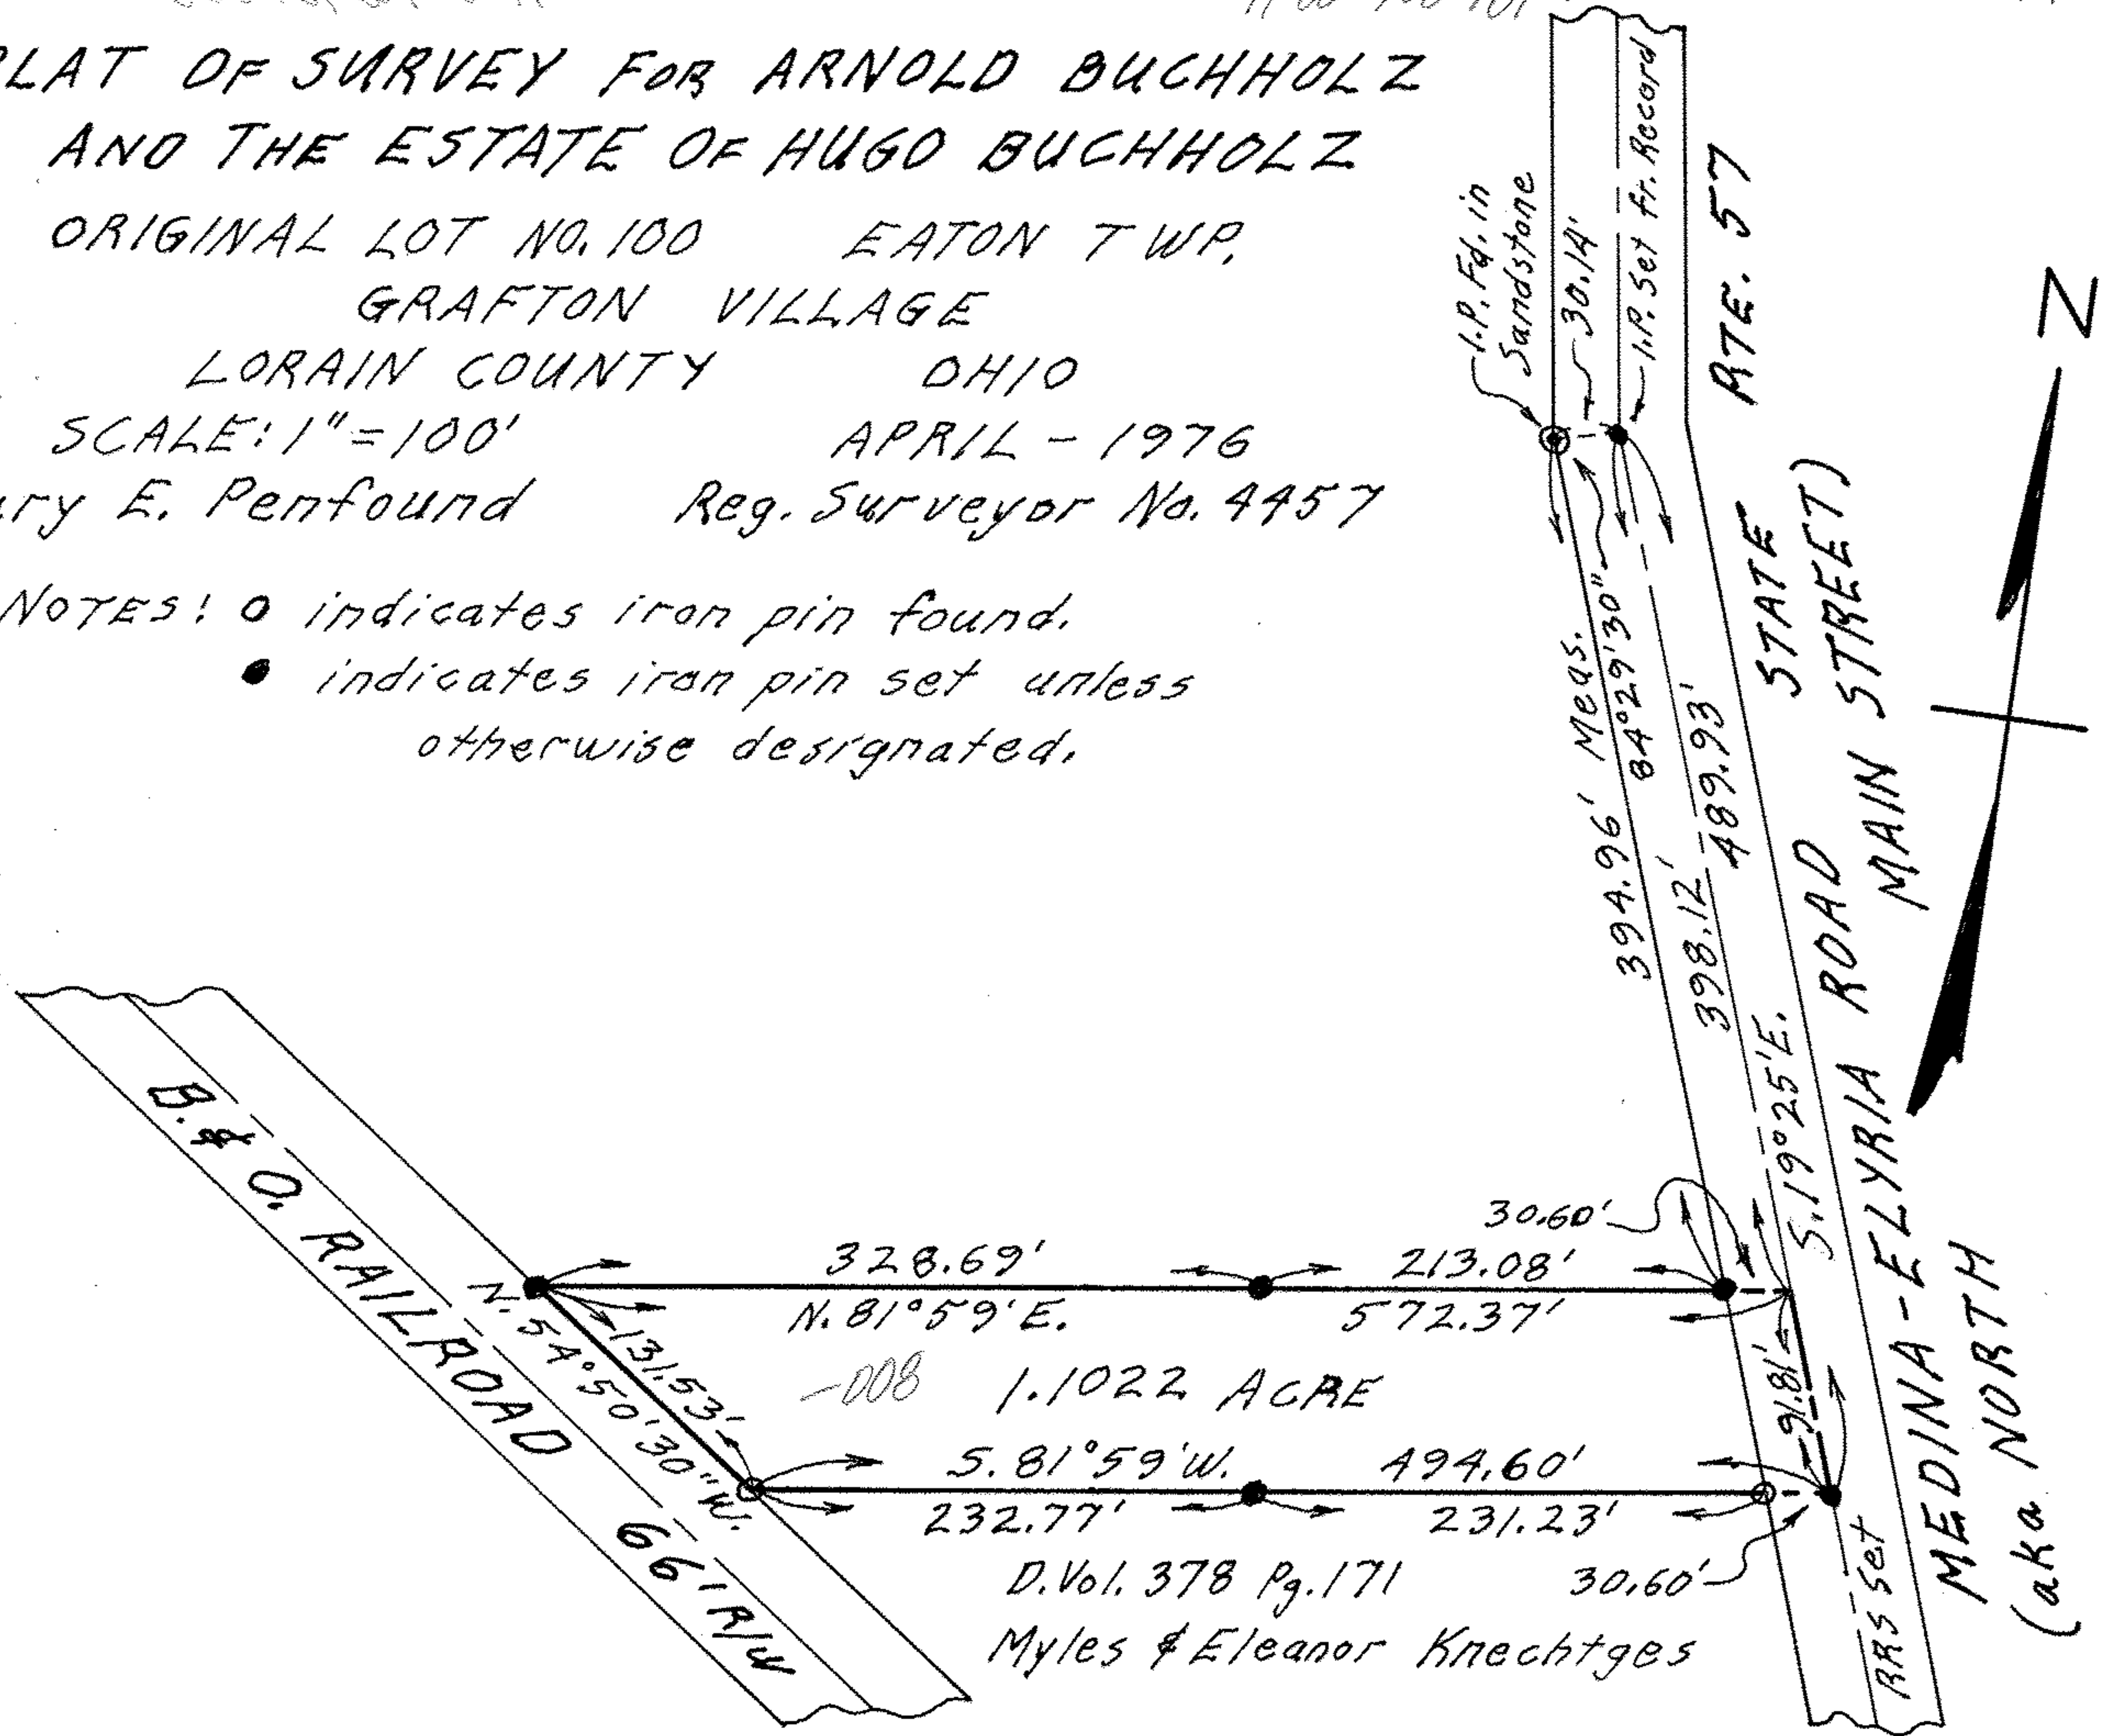 PLAT OF SURVEY FOR ARNOLD BUCHHOLZ
AND THE ESTATE OF HUGO BUCHHOLZ
ORIGINAL LOT NO. 100 EATON TWP.
GRAFTON VILLAGE
LORAIN COUNTY OHIO
SCALE: 1" = 100' APRIL - 1976
E. Penfound Reg. Surveyor No. 4457
NOTES: o indicates iron pin found.
● indicates iron pin set unless
otherwise designated.
I.P. Fd. in
Sandstone
30.14'
I.P. Set fr. Record
STATE RTE. 57
N
394.96' Meas.
84°29'30"
398.12'
489.93'
S.19°25'E.
MEDINA-ELYRIA ROAD
(aka NORTH MAIN STREET)
30.60'
328.69' 213.08'
N. 81°59' E. 572.37'
131.53'
N. 54°50'30" W.
-008 1.1022 ACRE
91.81'
S. 81°59' W. 494.60'
232.77' 231.23'
D. Vol. 378 Pg. 171 30.60'
Myles & Eleanor Knechtges
RRS Set
B. & O. RAILROAD 66' R/W